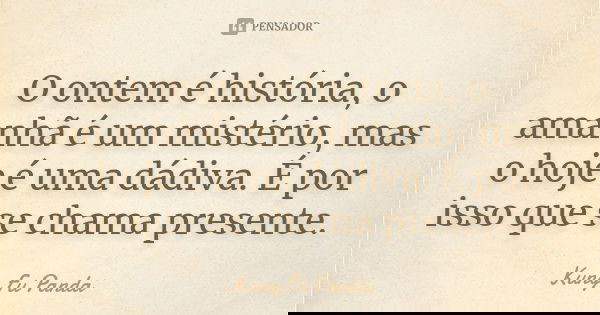 PENSADOR
O ontem é história, o
amanhã é um mistério, mas
o hoje é uma dádiva. É por
isso que se chama presente.
Kung Fu Panda